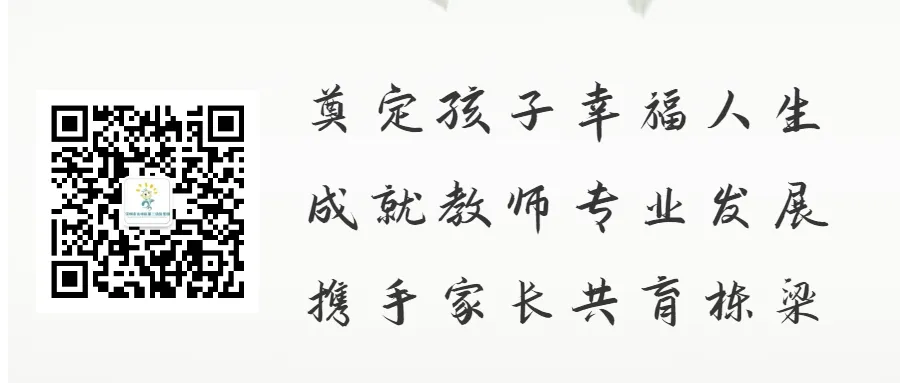 奠定孩子幸福人生
成就教师专业发展
携手家长共育栋梁